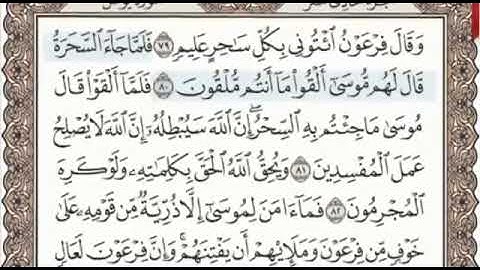 وَقَالَ فِرْعَوْنُ ٱئْتُونِى بِكُلِّ سَـٰحِرٍ عَلِيمٍ ٧٩ فَلَمَّا جَآءَ ٱلسَّحَرَةُ
قَالَ لَهُم مُّوسَىٰٓ أَلْقُوا۟ مَآ أَنتُم مُّلْقُونَ ٨٠ فَلَمَّآ أَلْقَوْا۟ قَالَ
مُوسَىٰ مَا جِئْتُم بِهِ ٱلسِّحْرُ ۖ إِنَّ ٱللَّهَ سَيُبْطِلُهُۥٓ ۖ إِنَّ ٱللَّهَ لَا يُصْلِحُ
عَمَلَ ٱلْمُفْسِدِينَ ٨١ وَيُحِقُّ ٱللَّهُ ٱلْحَقَّ بِكَلِمَـٰتِهِۦ وَلَوْ كَرِهَ
ٱلْمُجْرِمُونَ ٨٢ فَمَآ ءَامَنَ لِمُوسَىٰٓ إِلَّا ذُرِّيَّةٌ مِّن قَوْمِهِۦ عَلَىٰ
خَوْفٍ مِّن فِرْعَوْنَ وَمَلَإِي۟هِمْ أَن يَفْتِنَهُمْ ۚ وَإِنَّ فِرْعَوْنَ لَعَالٍ